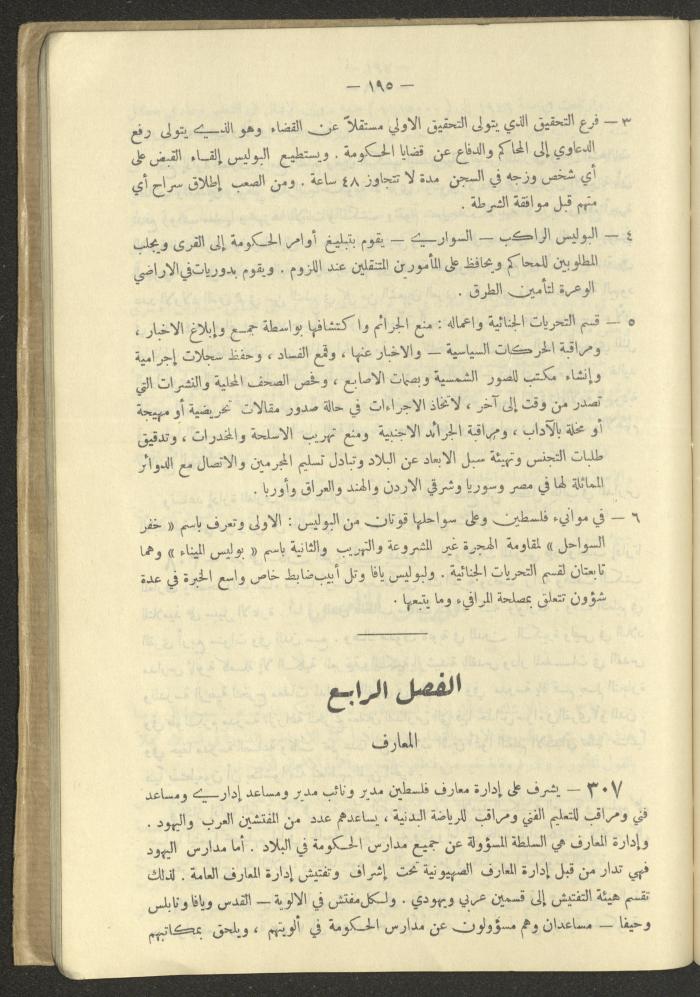 — ١٩٥ —
٣ — فرع التحقيق الذي يتولى التحقيق الاولي مستقلاً عن القضاء وهو الذي يتولى رفع
الدعاوي إلى المحاكم والدفاع عن قضايا الحكومة . ويستطيع البوليس إلقاء القبض على
أي شخص وزجه في السجن مدة لا تتجاوز ٤٨ ساعة . ومن الصعب إطلاق سراح أي
منهم قبل موافقة الشرطة .
٤ — البوليس الراكب — السواري — يقوم بتبليغ أوامر الحكومة إلى القرى ويجلب
المطلوبين للمحاكم ويحافظ على المأمورين المتنقلين عند اللزوم . ويقوم بدوريات في الاراضي
الوعرة لتأمين الطرق .
٥ — قسم التحريات الجنائية واعماله : منع الجرائم واكتشافها بواسطة جمع وإبلاغ الاخبار ،
ومراقبة الحركات السياسية — والاخبار عنها ، وقمع الفساد ، وحفظ سجلات إجرامية
وإنشاء مكتب للصور الشمسية وبصمات الاصابع ، وفحص الصحف المحلية والنشرات التي
تصدر من وقت إلى آخر ، لاتخاذ الاجراءات في حالة صدور مقالات تحريضية أو مهيجة
أو مخلة بالآداب ، ومراقبة الجرائد الاجنبية ومنع تهريب الاسلحة والمخدرات ، وتدقيق
طلبات التجنس وتهيئة سبل الابعاد عن البلاد وتبادل تسليم المجرمين والاتصال مع الدوائر
المماثلة لها في مصر وسوريا وشرقي الاردن والهند والعراق وأوربا .
٦ — في موانيء فلسطين وعلى سواحلها قوتان من البوليس : الاولى وتعرف باسم « خفر
السواحل » لمقاومة الهجرة غير المشروعة والتهريب والثانية باسم « بوليس الميناء » وهما
تابعتان لقسم التحريات الجنائية . ولبوليس يافا وتل أبيب ضابط خاص واسع الخبرة في عدة
شؤون تتعلق بمصلحة المرافيء وما يتبعها .
الفصل الرابع
المعارف
٣٠٧ — يشرف على إدارة معارف فلسطين مدير ونائب مدير ومساعد إداري ومساعد
فني ومراقب للتعليم الفني ومراقب للرياضة البدنية ، يساعدهم عدد من المفتشين العرب واليهود .
وإدارة المعارف هي السلطة المسؤولة عن جميع مدارس الحكومة في البلاد . أما مدارس اليهود
فهي تدار من قبل إدارة المعارف الصهيونية تحت إشراف وتفتيش إدارة المعارف العامة . لذلك
تقسم هيئة التفتيش إلى قسمين عربي ويهودي . ولكل مفتش في الالوية — القدس ويافا ونابلس
وحيفا — مساعدان وهم مسؤولون عن مدارس الحكومة في ألويتهم ، ويلحق بمكاتبهم